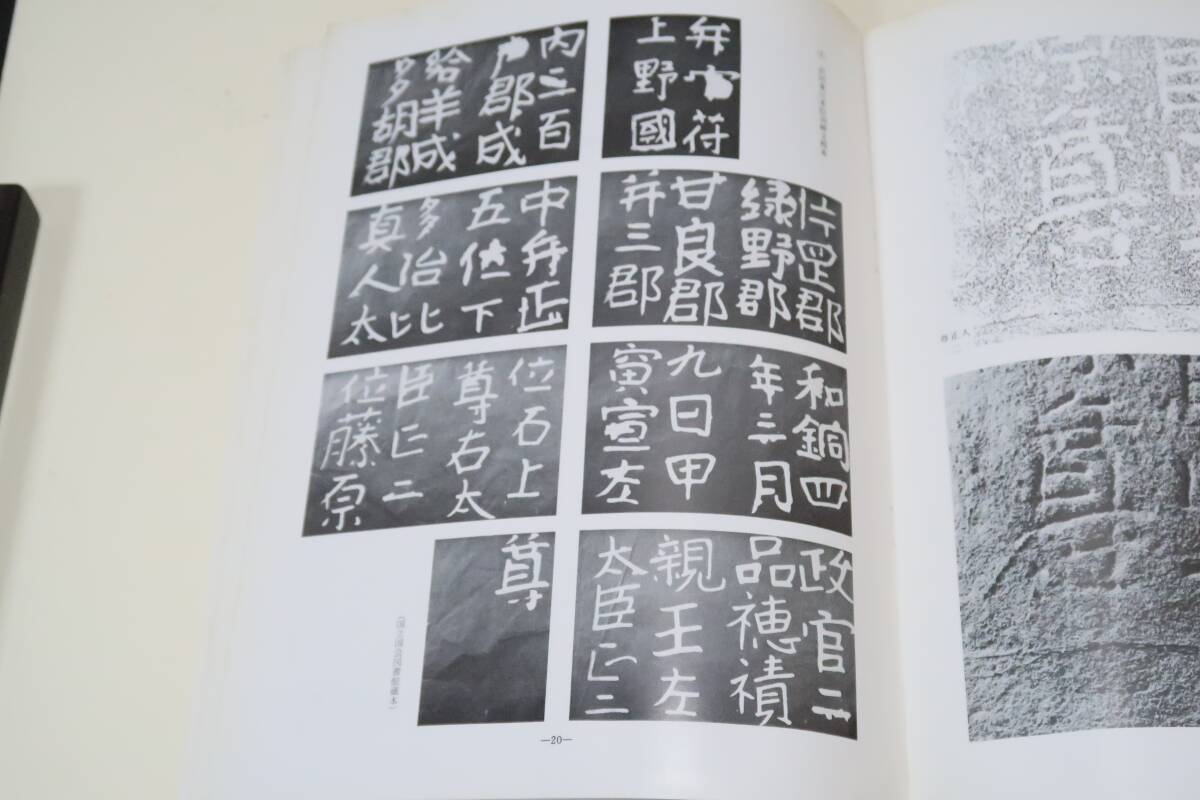 弁官符
上野國
片罡郡
緑野郡
甘良郡
并三郡
内三百
戸郡成
給羊成
多胡郡
和銅四
年三月
九日甲
寅宣左
中弁正
五位下
多治比
真人太
政官二
品穂積
親王左
太臣正二
位石上
尊右太
臣正二
位藤原
尊
(国立国会図書館蔵本)
—20—